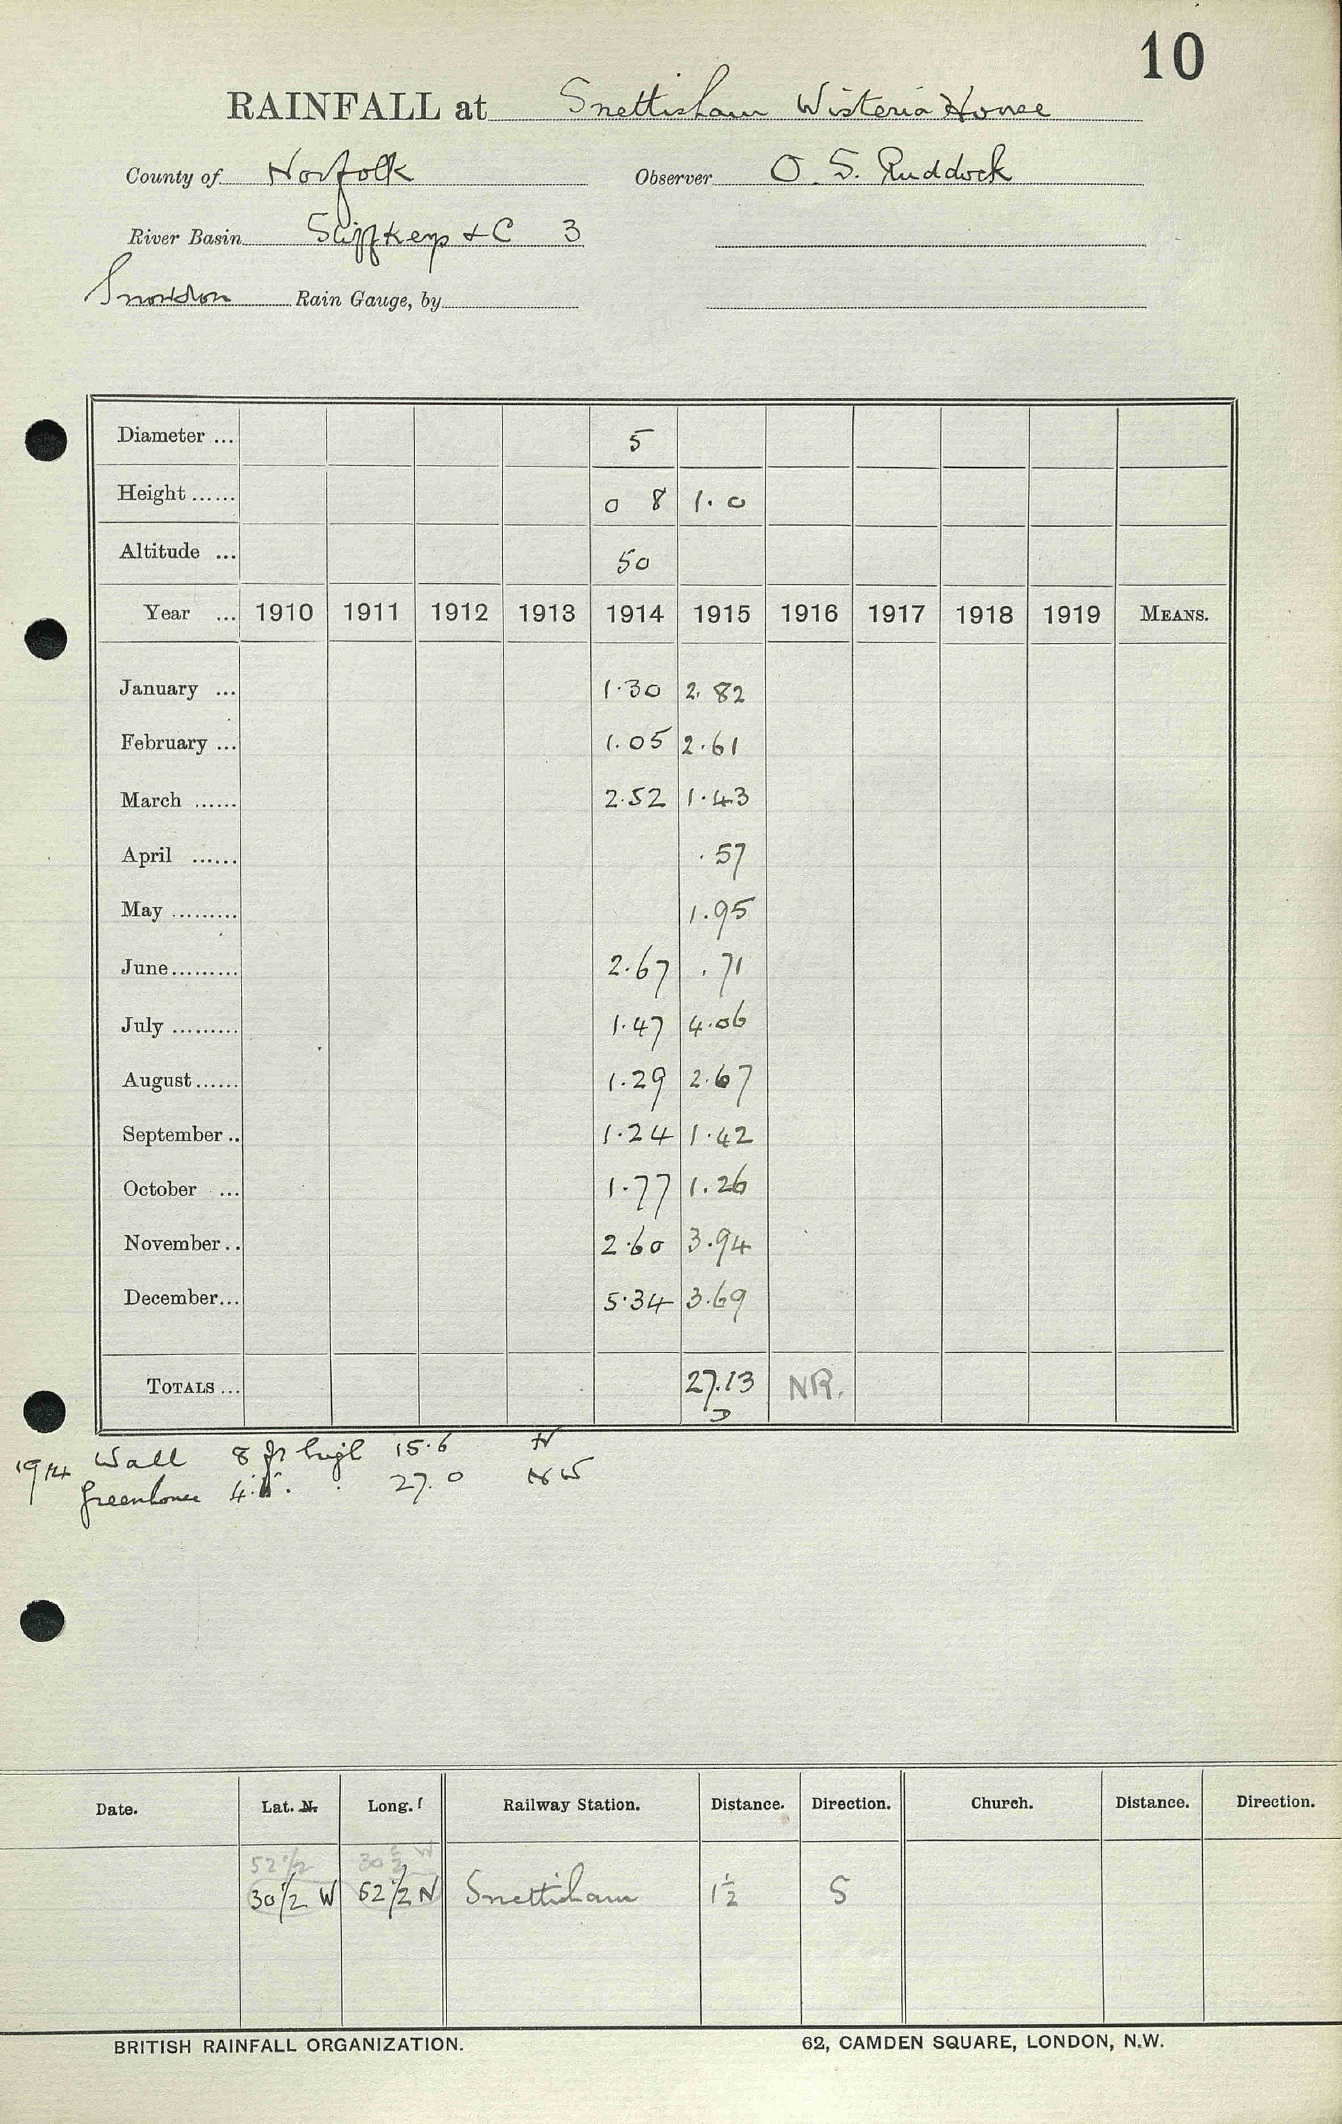 10
RAINFALL at Snettisham Wisteria House
County of Norfolk Observer O. S. Ruddock
River Basin Stiffkey &c 3
Snowdon Rain Gauge, by
Diameter ... 5
Height ...... 0 8 1.0
Altitude ... 50
Year ... 1910 1911 1912 1913 1914 1915 1916 1917 1918 1919 MEANS.
January ... 1.30 2.82
February ... 1.05 2.61
March ...... 2.52 1.43
April ...... .57
May ......... 1.95
June......... 2.67 .71
July ......... 1.47 4.06
August...... 1.29 2.67
September .. 1.24 1.42
October ... 1.77 1.26
November .. 2.60 3.94
December... 5.34 3.69
TOTALS ... 27.13 NR.
D
1914 Wall 8 ft high 15.6 N
Greenhouse 27.0 NW
Date. Lat. N. Long. Railway Station. Distance. Direction. Church. Distance. Direction.
52 1/2 30 1/2 W
30 1/2 W 52 1/2 N Snettisham 1 1/2 S
BRITISH RAINFALL ORGANIZATION. 62, CAMDEN SQUARE, LONDON, N.W.